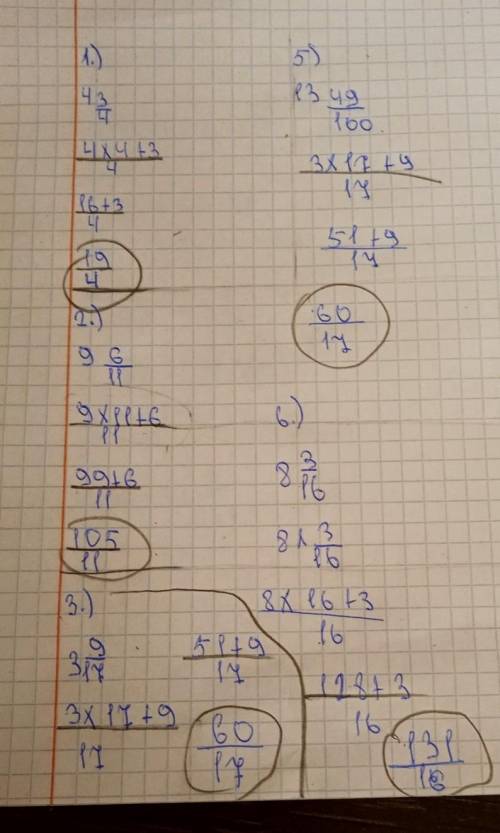 1.)
4 3/4
4x4+3/4
16+3/4
19/4
2.)
9 6/11
9x11+6/11
99+6/11
105/11
3.)
3 9/17
3x17+9/17
51+9/17
60/17
5)
13 49/100
3x17+9/17
51+9/17
60/17
6.)
8 3/16
8x 3/16
8x16+3/16
128+3/16
131/16